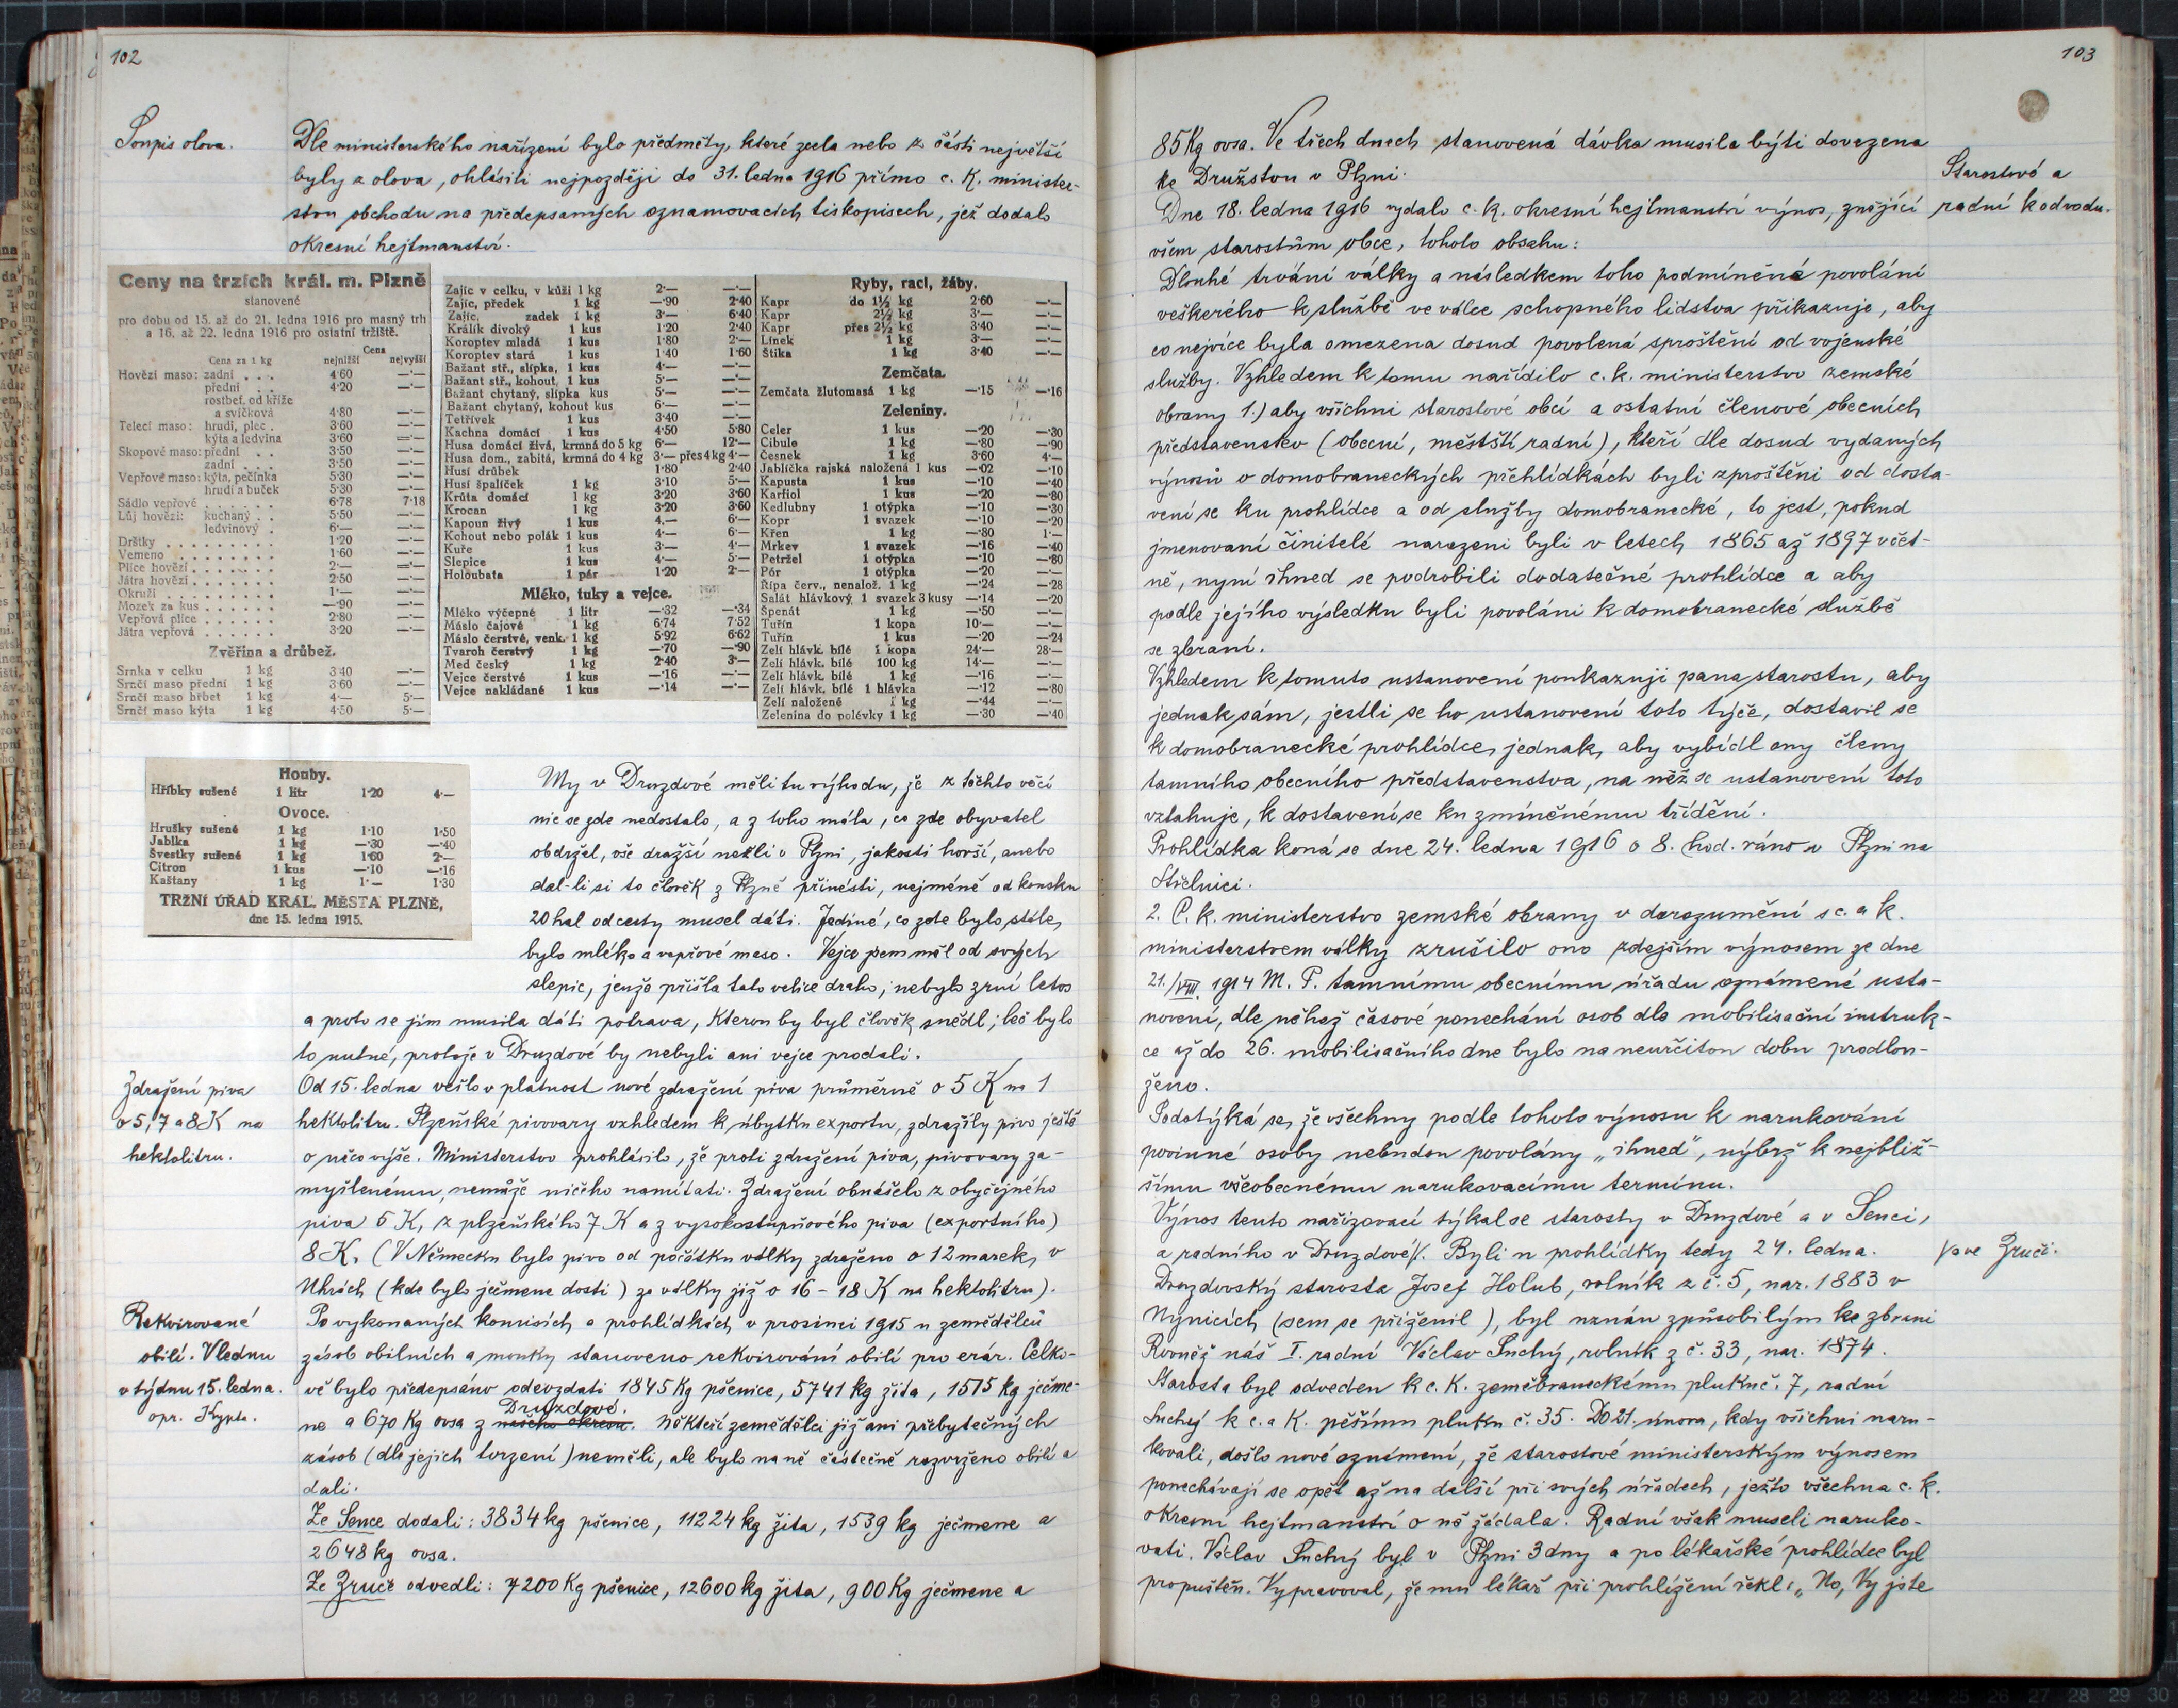 102
Soupis olova.
Dle ministerského nařízení bylo předměty, které zcela nebo z části největší
byly z olova, ohlásiti nejpozději do 31. ledna 1916 přímo c. K. minister-
stvu obchodu na předepsaných oznamovacích tiskopisech, jež dodalo
okresní hejtmanství.
Ceny na trzích král. m. Plzně
stanovené
pro dobu od 15. až do 21. ledna 1916 pro masný trh
a 16. až 22. ledna 1916 pro ostatní tržiště.
Cena
Cena za 1 kg nejnižší nejvyšší
Hovězí maso: zadní . . . 4·60 —·—
přední . . . 4·20 —·—
rostbef. od kříže
a svíčková 4·80 —·—
Telecí maso: hrudí, plec . 3·60 —·—
kýta a ledvina 3·60 —·—
Skopové maso: přední . . 3·50 —·—
zadní . . . 3·50 —·—
Vepřové maso: kýta, pečínka 5·30 —·—
hrudí a buček 5·30 —·—
Sádlo vepřové . . . . . . 6·78 7·18
Lůj hovězí: kuchaný . . 5·50 —·—
ledvinový . 6·— —·—
Držtky . . . . . . . . . 1·20 —·—
Vemeno . . . . . . . . . 1·60 —·—
Plíce hovězí . . . . . . . 2·— —·—
Játra hovězí . . . . . . . 2·50 —·—
Okruží . . . . . . . . . 1·— —·—
Mozek za kus . . . . . . —·90 —·—
Vepřová plíce . . . . . . 2·80 —·—
Játra vepřová . . . . . . 3·20 —·—
Zvěřina a drůbež.
Srnka v celku 1 kg 3·40 —·—
Srnčí maso přední 1 kg 3·60 —·—
Srnčí maso hřbet 1 kg 4·— 5·—
Srnčí maso kýta 1 kg 4·50 5·—
Zajíc v celku, v kůži 1 kg 2·— —·—
Zajíc, předek 1 kg —·90 2·40
Zajíc, zadek 1 kg 3·— 6·40
Králík divoký 1 kus 1·20 2·40
Koroptev mladá 1 kus 1·80 2·—
Koroptev stará 1 kus 1·40 1·60
Bažant stř., slípka, 1 kus 4·— —·—
Bažant stř., kohout, 1 kus 5·— —·—
Bažant chytaný, slípka kus 5·— —·—
Bažant chytaný, kohout kus 6·— —·—
Tetřívek 1 kus 3·40 —·—
Kachna domácí 1 kus 4·50 5·80
Husa domácí živá, krmná do 5 kg 6·— 12·—
Husa dom., zabitá, krmná do 4 kg 3·— přes 4 kg 4·—
Husí drůbek 1·80 2·40
Husí špalíček 1 kg 3·10 5·—
Krůta domácí 1 kg 3·20 3·60
Krocan 1 kg 3·20 3·60
Kapoun živý 1 kus 4.— 6·—
Kohout nebo polák 1 kus 4·— 6·—
Kuře 1 kus 3·— 4·—
Slepice 1 kus 4·— 5·—
Holoubata 1 pár 1·20 2·—
Mléko, tuky a vejce.
Mléko výčepné 1 litr —·32 —·34
Máslo čajové 1 kg 6·74 7·52
Máslo čerstvé, venk. 1 kg 5·92 6·62
Tvaroh čerstvý 1 kg —·70 —·90
Med český 1 kg 2·40 3·—
Vejce čerstvé 1 kus —·16 —·—
Vejce nakládané 1 kus —·14 —·—
Ryby, raci, žáby.
Kapr do 1½ kg 2·60 —·—
Kapr 2½ kg 3·— —·—
Kapr přes 2½ kg 3·40 —·—
Línek 1 kg 3·— —·—
Štika 1 kg 3·40 —·—
Zemčata.
Zemčata žlutomasá 1 kg —·15 —·16
Zeleniny.
Celer 1 kus —·20 —·30
Cibule 1 kg —·80 —·90
Česnek 1 kg 3·60 4·—
Jablíčka rajská naložená 1 kus —·02 —·10
Kapusta 1 kus —·10 —·40
Karfiol 1 kus —·20 —·80
Kedlubny 1 otýpka —·10 —·30
Kopr 1 svazek —·10 —·20
Křen 1 kg —·80 1·—
Mrkev 1 svazek —·16 —·40
Petržel 1 otýpka —·10 —·80
Pór 1 otýpka —·20 —·—
Řípa červ., nenalož. 1 kg —·24 —·28
Salát hlávkový 1 svazek 3 kusy —·14 —·20
Špenát 1 kg —·50 —·—
Tuřín 1 kopa 10·— —·—
Tuřín 1 kus —·20 —·24
Zelí hlávk. bílé 1 kopa 24·— 28·—
Zelí hlávk. bílé 100 kg 14·— —·—
Zelí hlávk. bílé 1 kg —·16 —·—
Zelí hlávk. bílé 1 hlávka —·12 —·80
Zelí naložené 1 kg —·44 —·—
Zelenina do polévky 1 kg —·30 —·40
Houby.
Hříbky sušené 1 litr 1·20 4·—
Ovoce.
Hrušky sušené 1 kg 1·10 1·50
Jablka 1 kg —·30 —·40
Švestky sušené 1 kg 1·60 2·—
Citron 1 kus —·10 —·16
Kaštany 1 kg 1·— 1·30
TRŽNÍ ÚŘAD KRÁL. MĚSTA PLZNĚ,
dne 15. ledna 1915.
My v Druzdové měli tu výhodu, že z těchto věcí
nic se zde nedostalo, a z toho mála, co zde obyvatel
obdržel, vše dražší nežli v Plzni, jakosti horší, anebo
dal-li si to člověk z Plzně přinésti, nejméně od kousku
20 hal od cesty musel dáti. Jediné, co zde bylo stále,
bylo mléko a vepřové maso. Vejce jsem měl od svých
slepic, jenže přišla tato velice draho, nebylo zrní letos
a proto se jim musila dáti potrava, kterou by byl člověk snědl; leč bylo
to nutné, protože v Druzdové by nebyli ani vejce prodali.
Zdražení piva
o 5, 7 a 8 K na
hektolitru.
Od 15. ledna vešlo v platnost nové zdražení piva průměrně o 5 K na 1
hektolitru. Plzeňské pivovary vzhledem k úbytku exportu, zdražily pivo ještě
o něco výše. Ministerstvo prohlásilo, že proti zdražení piva, pivovary za-
myšlenému, nemůže ničeho namítati. Zdražení obnášelo z obyčejného
piva 5 K, z plzeňského 7 K a z vysokostupňového piva (exportního)
8 K. (V Německu bylo pivo od počátku války zdraženo o 12 marek, v
Uhrách (kde bylo ječmene dosti) za války již o 16 - 18 K na hektolitru).
Rekvirované
obilí. Vlednu
v týdnu 15. ledna.
opr. Krypta.
Po vykonaných komisích a prohlídkách v prosinci 1915 u zemědělců
zásob obilních a mouky stanoveno rekvirování obilí pro erár. Celko-
vě bylo předepsáno odevzdati 1845 Kg pšenice, 5741 kg žita, 1515 kg ječme-
Druzdové.
ne a 670 Kg ovsa z našeho okresu. Někteří zemědělci již ani přebytečných
zásob (dle jejich tvrzení) neměli, ale bylo na ně částečně rozvrženo obilí a
dali.
Ze Sence dodali: 3834 kg pšenice, 11224 kg žita, 1539 kg ječmene a
2648 kg ovsa.
Ze Zruče odvedli: 4200 Kg pšenice, 12600 kg žita, 900 Kg ječmene a
103
85 Kg ovsa. Ve třech dnech stanovená dávka musila býti dovezena
ke Družstvu v Plzni.
Starostové a
radní k odvodu.
Dne 18. ledna 1916 vydalo c. k. okresní hejtmanství výnos, znějící
všem starostům obce, tohoto obsahu:
Dlouhé trvání války a následkem toho podmíněné povolání
veškerého k službě ve válce schopného lidstva přikazuje, aby
co nejvíce byla omezena dosud povolená sproštění od vojenské
služby. Vzhledem k tomu nařídilo c. k. ministerstvo zemské
obrany 1.) aby všichni starostové obcí a ostatní členové obecních
představenstev (obecní, městští radní), kteří dle dosud vydaných
výnosů o domobraneckých přehlídkách byli zproštěni od dosta-
vení se ku prohlídce a od služby domobranecké, to jest, pokud
jmenovaní činitelé narozeni byli v letech 1865 až 1897 včet-
ně, nyní ihned se podrobili dodatečné prohlídce a aby
podle jejího výsledku byli povoláni k domobranecké službě
se zbraní.
Vzhledem k tomuto ustanovení poukazuji pana starostu, aby
jednak sám, jestli se ho ustanovení toto týče, dostavil se
k domobranecké prohlídce, jednak, aby vybídl ony členy
tamního obecního představenstva, na něž se ustanovení toto
vztahuje, k dostavení se ku zmíněnému třídění.
Prohlídka koná se dne 24. ledna 1916 o 8. hod. ráno v Plzni na
Střelnici.
2. C. k. ministerstvo zemské obrany v dorozumění s c. a k.
ministerstvem války zrušilo ono zdejším výnosem ze dne
21./VIII. 1914 M. P. tamnímu obecnímu úřadu oznámené usta-
novení, dle něhož časové ponechání osob dle mobilisační instruk-
ce až do 26. mobilisačního dne bylo na neurčitou dobu prodlou-
ženo.
Podotýká se, že všechny podle tohoto výnosu k narukování
povinné osoby nebudou povolány „ihned", nýbrž k nejbliž-
šímu všeobecnému narukovacímu termínu.
Výnos tento nařizovací týkal se starosty v Druzdové a v Senci,
a radního v Druzdové/. Byli u prohlídky tedy 24. ledna.
/a ve Zruči.
Druzdovský starosta Josef Holub, rolník z č. 5, nar. 1883 v
Nynicích (sem se přiženil), byl uznán způsobilým ke zbrani
Rovněž náš I. radní Václav Suchý, rolník z č. 33, nar. 1874.
Starosta byl odveden k c. K. zeměbraneckému pluku č. 7, radní
Suchý k c. a K. pěšímu pluku č. 35. Do 21. února, kdy všichni naru-
kovali, došlo nové oznámení, že starostové ministerským výnosem
ponechávají se opět až na další při svých úřadech, ježto všechna c. k.
okresní hejtmanství o ně žádala. Radní však museli naruko-
vati. Václav Suchý byl v Plzni 3 dny a po lékařské prohlídce byl
propuštěn. Vypravoval, že mu lékař při prohlížení řekl: „No, Vy jste